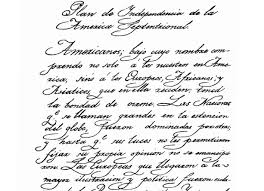 Plan de Independencia de la
America Septentrional.
Americanos, bajo cuyo nombre com-
prendo no solo a los nacidos en Ame
rica, sino a los Europeos, Africanos y
Asiaticos, que en ella residen: tened
la bondad de oirme. Las Naciones
q^e se llaman grandes en la estencion
del globo, fueron dominadas por otras,
y hasta q^e sus luces no les permitieron
fijar su propia opinion no se emanci-
paron. Las Europeas que llegaron a la
mayor ilustracion y politica fueron escla-